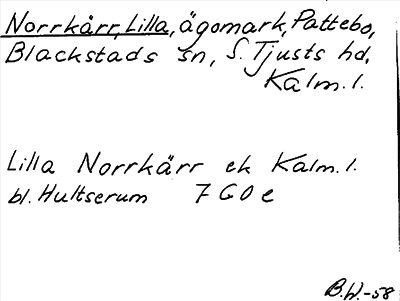 Norrkärr, Lilla, ägomark, Pattebo,
Blackstads sn, S. Tjusts hd,
Kalm. l.
Lilla Norrkärr ek Kalm. l.
bl. Hultserum 7 G 0 e
B.W.-58